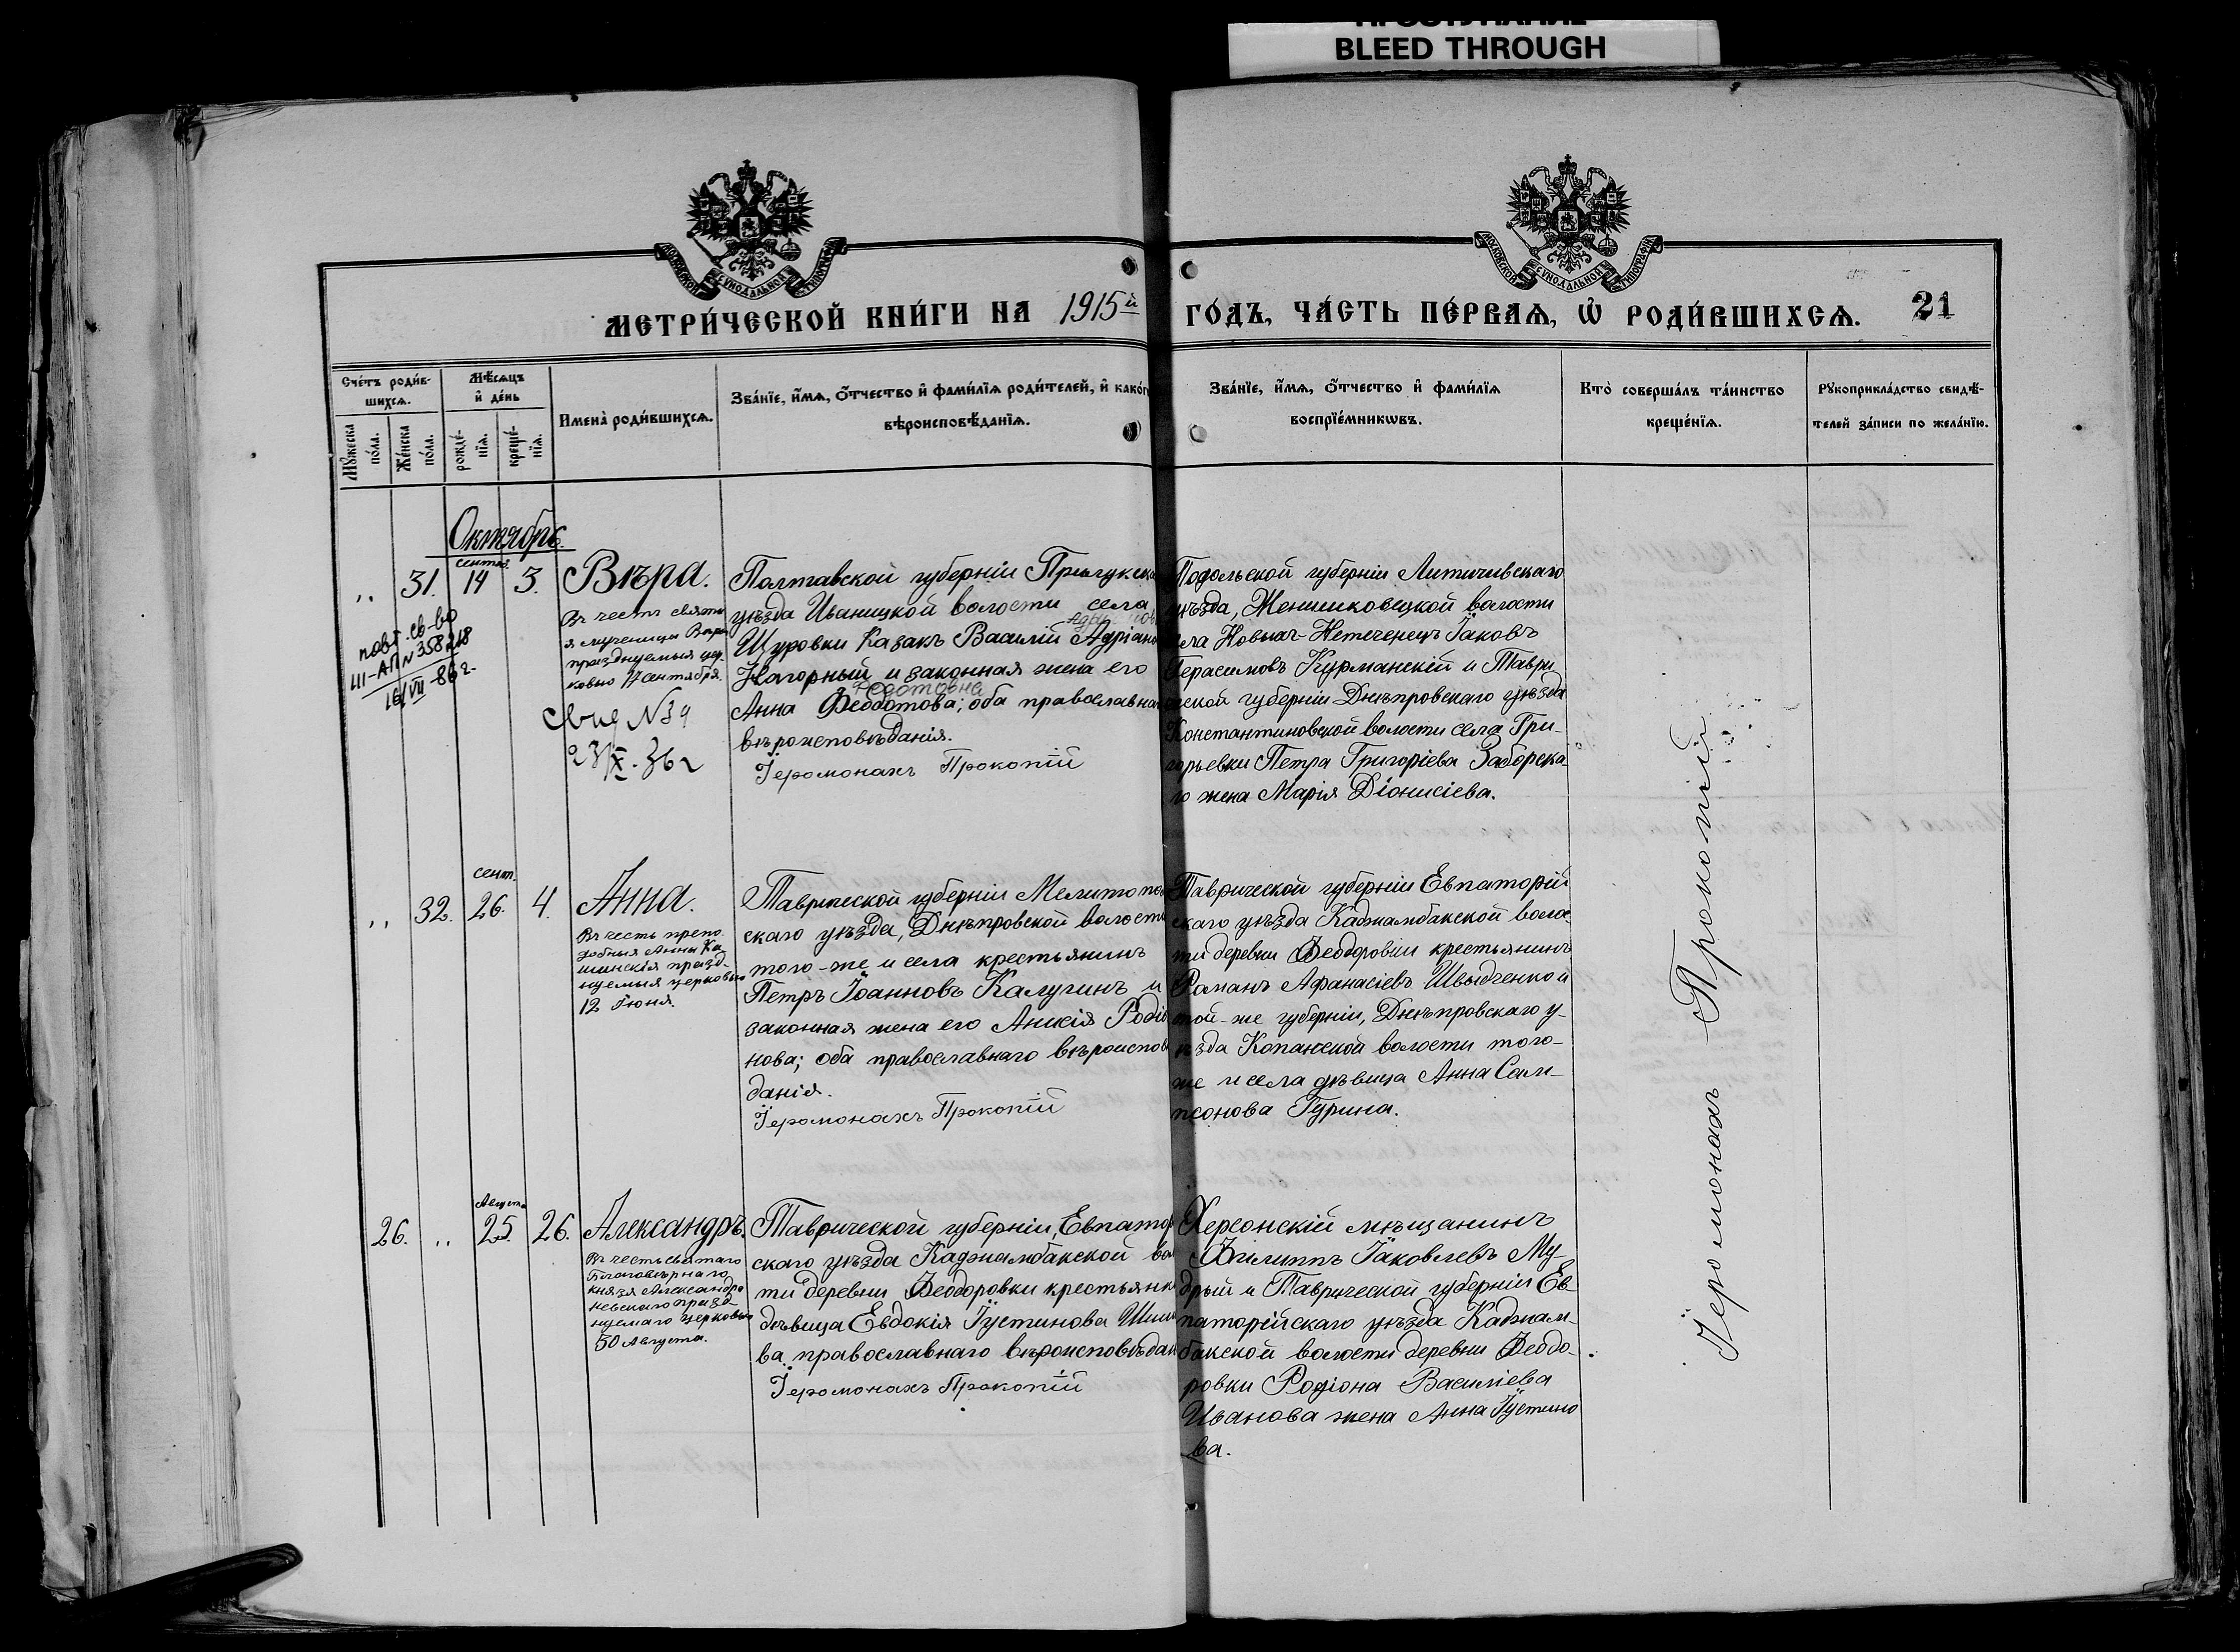 ПРОСТУПАНИЕ
BLEED THROUGH
МОСКОВСКОЙ СѴНОДАЛЬНОЙ ТИПОГРАФІИ
МОСКОВСКОЙ СѴНОДАЛЬНОЙ ТИПОГРАФІИ
МЕТРИ́ЧЕСКОЙ КНИ́ГИ НА 1915й ГО́ДЪ, ЧА́СТЬ ПЕ́РВАѦ, Ѡ҆ РОДИ́ВШИХСѦ. 21
Сче́тъ роди́в-
шихсѧ.
Мѣ́сѧцъ
и҆ де́нь
Мꙋ́жеска
по́ла.
Же́нска
по́ла.
рожде́-
нїѧ.
креще́-
нїѧ.
И҆мена̀ роди́вшихсѧ.
Зва́нїе, и҆́мѧ, ѻ҆́тчество и҆ фами́лїѧ роди́телей, и҆ како́г
вѣроисповѣ́данїѧ.
Зва́нїе, и҆́мѧ, ѻ҆́тчество и҆ фами́лїѧ
воспрїе́мникѡвъ.
Кто̀ соверша́лъ та́инство
креще́нїѧ.
Рꙋкоприкла́дство свидѣ́-
телей за́писи по жела́нїю.
Октябрь.
„ 31. сентяб. 14 3. Вѣра.
Въ честь святы
я мученицы Вѣры
празднуемыя цер-
ковью 17 сентября.
повт. св-во
III-АП № 358218
16/VII-86 г.
свид № 39
23/X-36 г
Полтавской губерніи Прилукска
уѣзда Иваницкой волости села
Щуровки Казакъ Василій Адріано
Нагорный и законная жена его
Федотовна
Анна Ѳеодотова; оба православна
вѣроисповѣданія.
Іеромонахъ Прокопій
Подольской губерніи Литичевскаго
уѣзда, Женишковецкой волости
села Новыхъ-Нетеченецъ Іаковъ
Герасимовъ Курманскій и Таври
ческой губерніи Днѣпровскаго уѣзда
Константиновской волости села Гри-
горьевки Петра Григоріева Заборска
го жена Марія Діонисіева.
„ 32. сент. 26. 4. Анна.
Въ честь препо
добныя Анны Ка
шинскія празд-
нуемыя церковью
12 Іюня.
Таврической губерніи Мелитопо
скаго уѣзда, Днѣпровской волости
того-же и села крестьянинъ
Петръ Іоанновъ Калугинъ и
законная жена его Анисія Родіо
нова; оба православнаго вѣроиспов
данія.
Іеромонахъ Прокопій
Таврической губерніи Евпаторій
скаго уѣзда Каджамбакской волос
ти деревни Ѳеодоровки крестьянинъ
Романъ Афанасіевъ Швыдченко и
той-же губерніи, Днѣпровскаго у-
ѣзда Копанской волости того-
же и села дѣвица Анна Сам-
псонова Гурина.
26. „ Августа 25. 26. Александръ.
Въ честь святаго
Благовѣрнаго
князя Александра
Невскаго празд-
нуемаго церковью
30 Августа.
Таврической губерніи, Евпатор
скаго уѣзда Каджамбакской во
ти деревни Ѳеодоровки крестьянк
дѣвица Евдокія Іустинова Шиш
ва православнаго вѣроисповѣдан
Іеромонахъ Прокопій
Херсонскій мѣщанинъ
Филиппъ Іаковлевъ Му-
дрый и Таврической губерніи Ев-
паторійскаго уѣзда Каджам-
бакской волости деревни Ѳеодо-
ровки Родіона Василіева
Иванова жена Анна Іустино
ва.
Іеромонахъ Прокопій